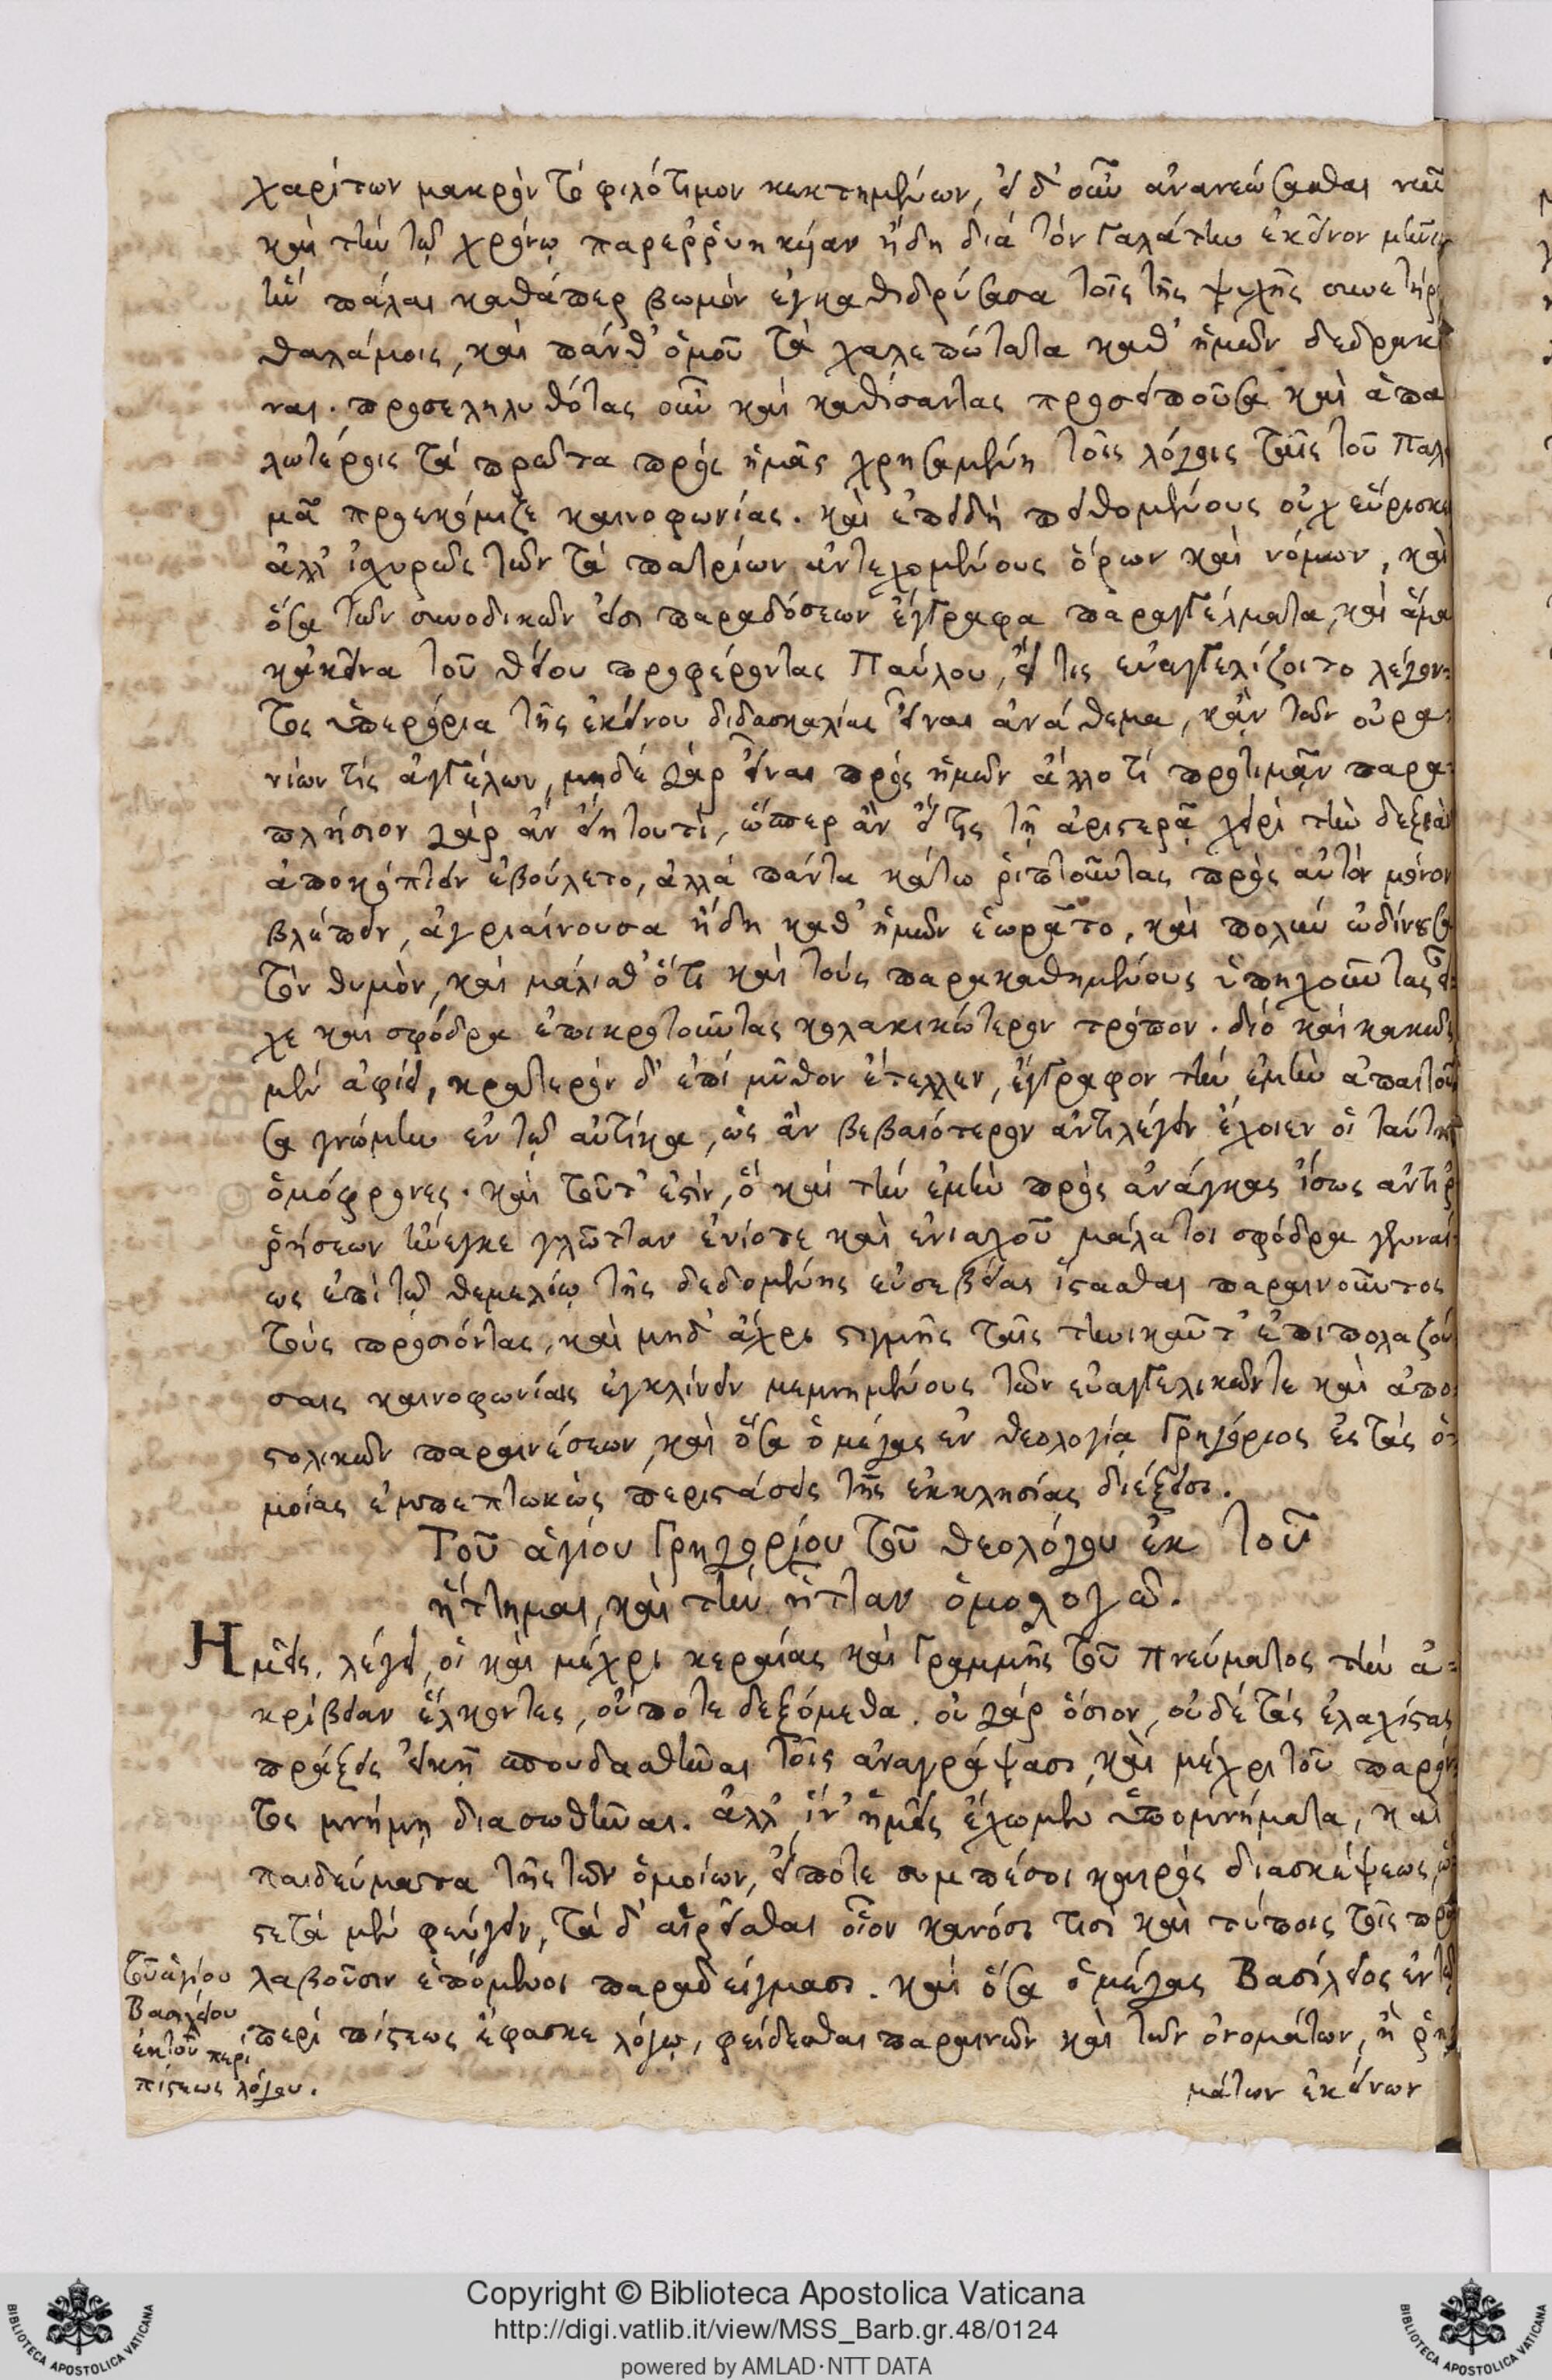 χαρίτων μακρὸν τὸ φιλότιμον κεκτημένων, εἰ δ' οὖν ἀνανεώσασθαι νῦν
καὶ τὴν τῷ χρόνῳ παρερρυηκυῖαν ἤδη διὰ τὸν Γαλάτην ἐκεῖνον μῆνιν
ἣν πάλαι καθάπερ βωμὸν ἐγκαθιδρύσασα τοῖς τῆς ψυχῆς συνετήρει
θαλάμοις, καὶ πάνθ' ὁμοῦ τὰ χαλεπώτατα καθ' ἡμῶν δεδρακέ
ναι. προσεληλυθότας οὖν καὶ καθίσαντας προσειποῦσα καὶ ἁπα
λωτέροις τὰ πρῶτα πρὸς ἡμᾶς χρησαμένη τοῖς λόγοις ταῖς τοῦ Παλα
μᾶ προσεκόμιζε καινοφωνίας. καὶ ἐπειδὴ πειθομένους οὐχ εὕρισκεν
ἀλλ' ἰσχυρῶς τῶν τὰ πατρίων ἀντεχομένους ὅρων καὶ νόμων, καὶ
ὅσα τῶν συνοδικῶν εἰσι παραδόσεων ἔγγραφα παραγγέλματα, καὶ ἅμα
κἀκεῖνα τοῦ θείου προφέροντας Παύλου, εἴ τις εὐαγγελίζοιτο λέγον-
τος ὑπερόρια τῆς ἐκείνου διδασκαλίας εἶναι ἀνάθεμα, κἂν τῶν οὐρα-
νίων τὶς ἀγγέλων, μηδὲ γὰρ εἶναι πρὸς ἡμῶν ἄλλο τί προτιμᾷν παρα-
πλήσιον γὰρ ἂν εἴη τουτὶ, ὥσπερ ἂν εἴ τις τῇ ἀριστερᾷ χειρὶ τὴν δεξιὰν
ἀποκόπτειν ἐβούλετο, ἀλλὰ πάντα κάτω ῥιπτοῦντας πρὸς αὐτὸν μόνον
βλέπειν, ἀγριαίνουσα ἤδη καθ' ἡμῶν ἑωρᾶτο, καὶ πολὺν ὠδίνουσα
τὸν θυμὸν, καὶ μάλισθ' ὅτι καὶ τοὺς παρακαθημένους ὑπηχοῦντας εἶ-
χε καὶ σφόδρα ἐπικροτοῦντας κολακικώτερον τρόπον. διὸ καὶ κακῶς
μὲν ἀφίει, κρατερὸν δ' ἐπὶ μῦθον ἔτελλεν, ἔγγραφον τὴν ἐμὴν ἀπαιτοῦ
σα γνώμην ἐν τῷ αὐτίκα, ὡς ἂν βεβαιότερον ἀντιλέγειν ἔχοιεν οἱ ταύτης
ὁμόφρονες. καὶ τοῦτ' ἐστὶν, ὃ καὶ τὴν ἐμὴν πρὸς ἀνάγκας ἴσως ἀντιρ
ρήσεων ἤνεγκε γλῶτταν ἐνίοτε καὶ ἐνιαχοῦ μάλα τοι σφόδρα γενναί-
ως ἐπὶ τῷ θεμελίῳ τῆς δεδομένης εὐσεβείας ἵστασθαι παραινοῦντος
τοὺς προσιόντας, καὶ μηδ' ἄχρι στιγμῆς ταῖς τηνικαῦτ' ἐπιπολαζού
σαις καινοφωνίαις ἐγκλίνειν μεμνημένους τῶν εὐαγγελικῶν τε καὶ ἀπο-
στολικῶν παραινέσεων, καὶ ὅσα ὁ μέγας ἐν θεολογίᾳ Γρηγόριος ἐς τὰς ὁ-
μοίας ἐμπεπτωκὼς περιστάσεις τῆς ἐκκλησίας διέξεισι.
Τοῦ ἁγίου Γρηγορίου τοῦ θεολόγου ἐκ τοῦ
ἥττημαι, καὶ τὴν ἧτταν ὁμολογῶ.
Ημεῖς, λέγει, οἱ καὶ μέχρι κεραίας καὶ γραμμῆς τοῦ πνεύματος τὴν ἀ-
κρίβειαν ἕλκοντες, οὔποτε δεξόμεθα. οὐ γὰρ ὅσιον, οὐδὲ τὰς ἐλαχίστας
πράξεις εἰκῆ σπουδασθῆναι τοῖς ἀναγράψασι, καὶ μέχρι τοῦ παρόν-
τος μνήμῃ διασωθῆναι. ἀλλ' ἵν' ἡμεῖς ἔχωμεν ὑπομνήματα, καὶ
παιδεύματα τῆς τῶν ὁμοίων, εἴποτε συμπέσοι καιρὸς διασκέψεως, ὥ
στε τὰ μὲν φεύγειν, τὰ δ' αἱρεῖσθαι οἷον κανόσι τισὶ καὶ τύποις τοῖς προ
λαβοῦσιν ἑπόμενοι παραδείγμασι. καὶ ὅσα ὁ μέγας Βασίλειος ἐν τῷ
περὶ πίστεως ἔφασκε λόγῳ, φείδεσθαι παραινῶν καὶ τῶν ὀνομάτων, ἢ ῥη
μάτων ἐκείνων
τοῦ ἁγίου
Βασιλείου
ἐκ τοῦ περὶ
πίστεως λόγου.
Copyright © Biblioteca Apostolica Vaticana
http://digi.vatlib.it/view/MSS_Barb.gr.48/0124
powered by AMLAD·NTT DATA
BIBLIOTECA APOSTOLICA VATICANA
BIBLIOTECA APOSTOLICA VATICANA